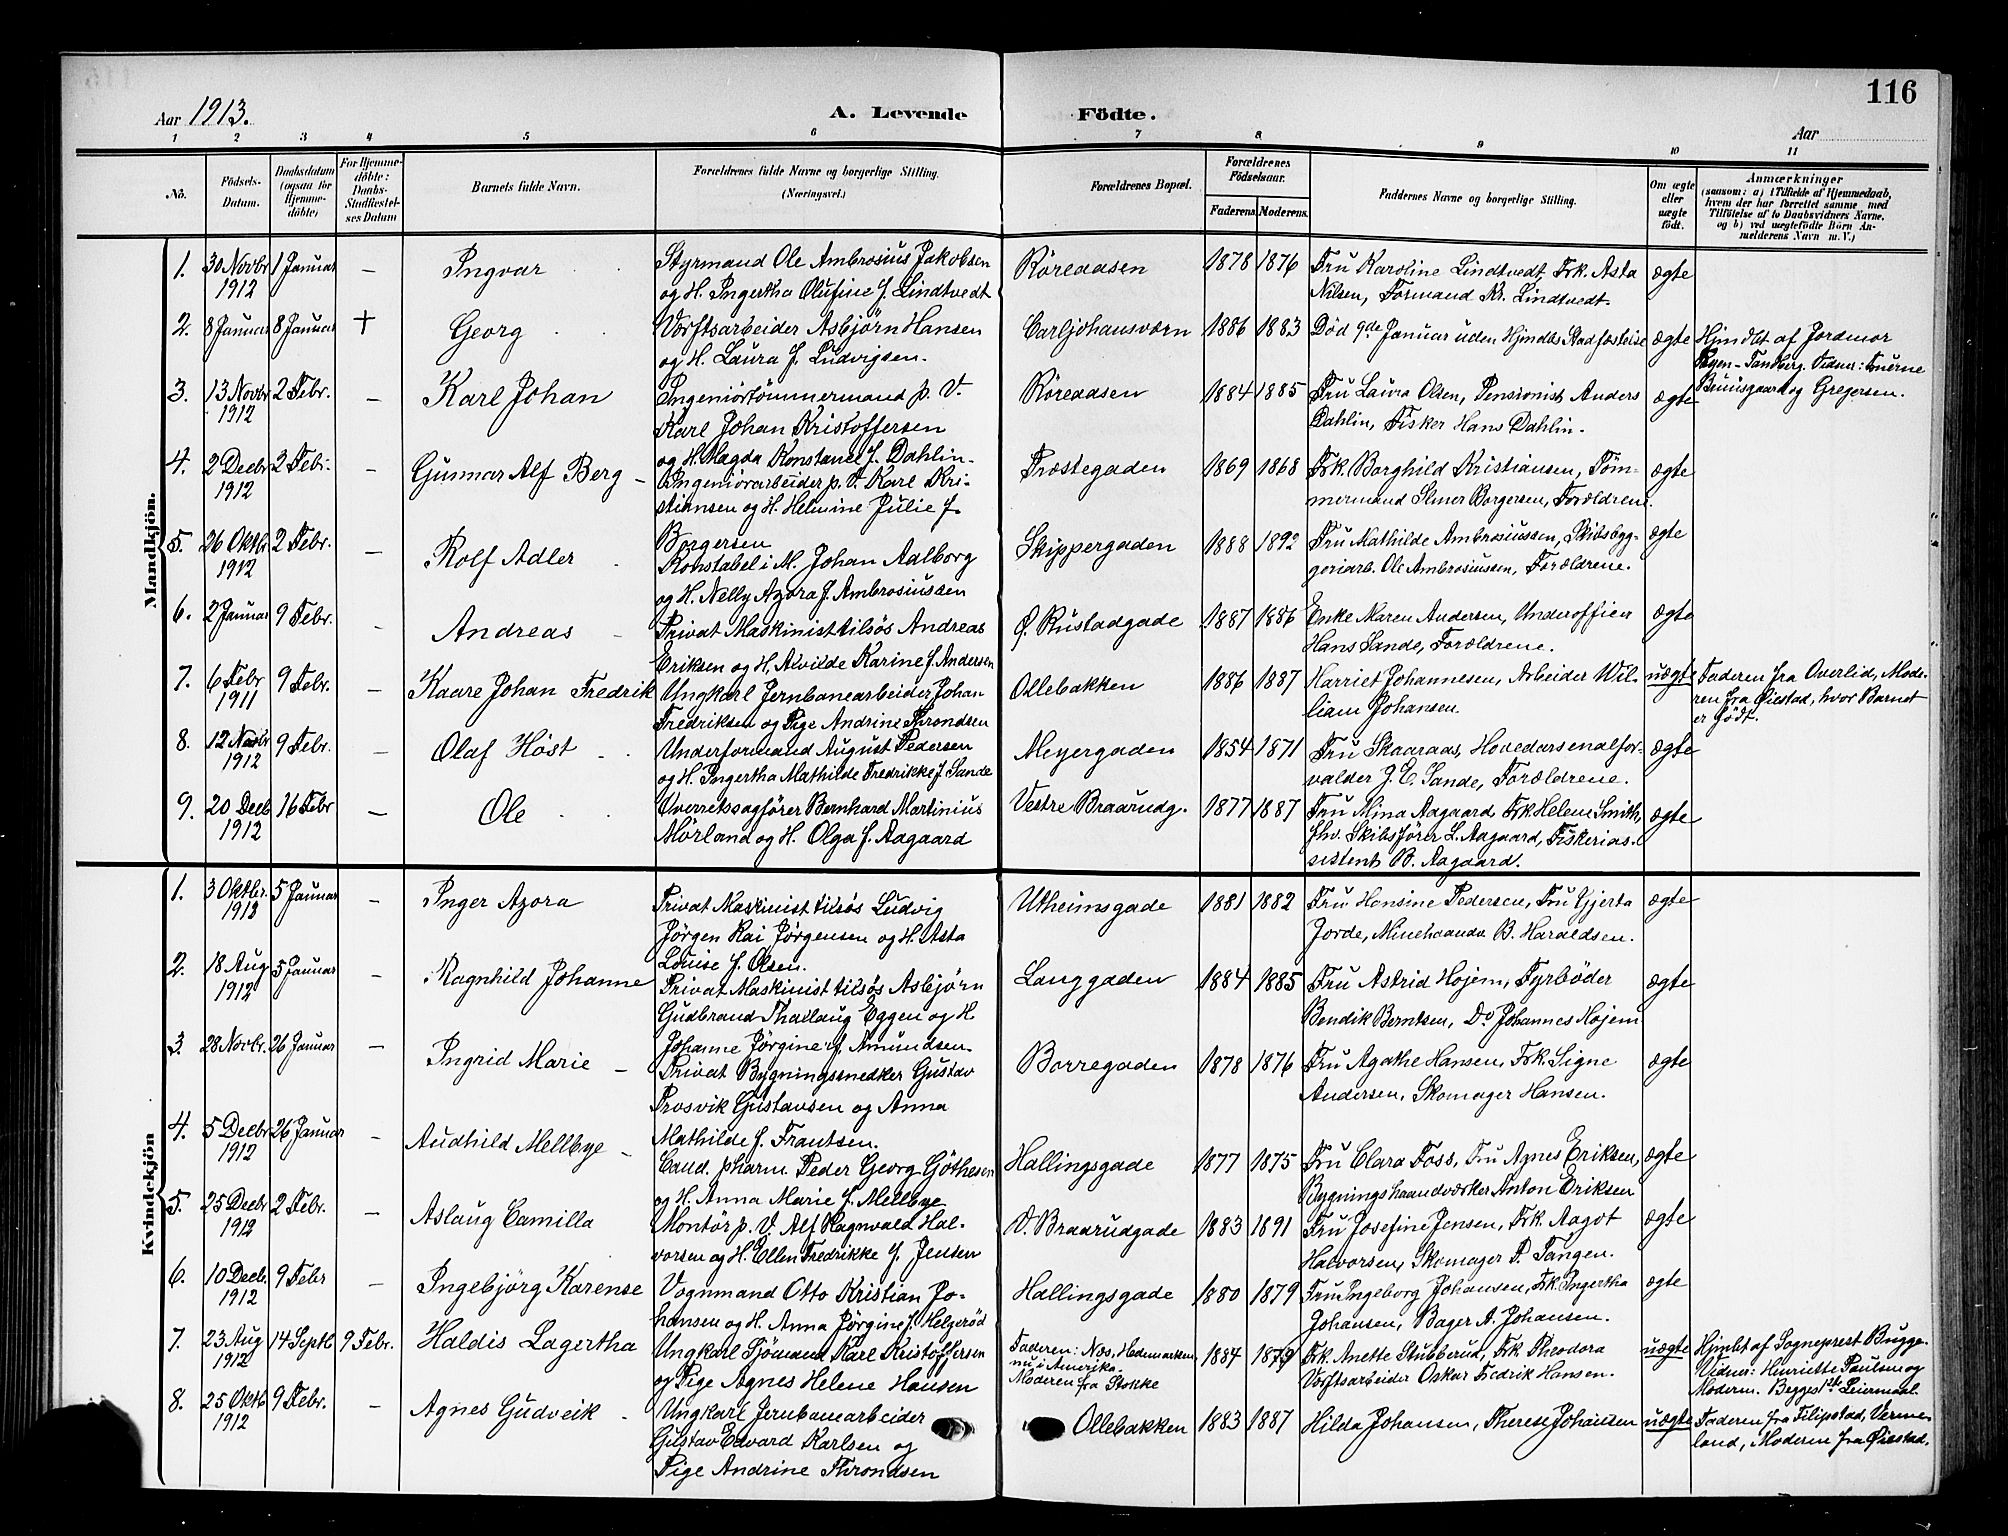 116
Aar 1913.
A. Levende Födte.
Aar
1 2 3 4 5 6 7 8 9 10 11
No.
Födsels-Datum.
Daabsdatum (ogsaa for Hjemmedöbte)
For Hjemmedöbte: Daabs-Stadfæstelses Datum
Barnets fulde Navn.
Forældrenes fulde Navne og borgerlige Stilling. (Næringsvei.)
Forældrenes Bopæl.
Forældrenes Födselsaar.
Faderens. Moderens.
Faddernes Navne og borgerlige Stilling.
Om ægte eller uægte født.
Anmærkninger
(saasom: a) i Tilfælde af Hjemmedaab, hvem der har forrettet samme med Tilföielse af to Daabsvidners Navne, og b) ved uægtefödte Börn Anmelderens Navn m. V.)
Mandkjön.
1. 30 Novbr 1912 1 Januar – Ingvar
Styrmand Ole Ambrosius Jakobsen
og H. Ingertha Olufine f. Lindtvedt
Røreaasen 1878 1876
Fru Karoline Lindtvedt, Frk. Asta
Nilsen, Formand Kr. Lindtvedt
ægte
2. 8 Januar 8 Januar + Georg
Værftsarbeider Asbjørn Hansen
og H. Laura f. Ludvigsen.
Carljohansværn 1886 1883
Död 9de Januar uden Hjmdbs Stadfæstelse
ægte
Hjmdbt af Jordmor
Fagen-Tandberg. Vidner: Fruerne
Bruusgaard og Gregersen.
3. 13 Novbr 1912 2 Febr. – Karl Johan
Ingeniörtömmermand p. V.
Karl Johan Kristoffersen
og H. Magda Konstance f. Dahlin
Røreaasen 1884 1885
Fru Laura Olsen, Pensionist Anders
Dahlin, Fisker Hans Dahlin.
ægte
4. 2 Decbr 1912 2 Febr. – Gunnar Alf Berg
Ingeniörarbeider p. V. Karl Kri-
stiansen og H. Helmine Julie f.
Borgersen
Præstegaden 1869 1868
Frk. Borghild Kristiansen, Töm-
mermand Elmer Borgersen, Forældrene
ægte
5. 26 Oktbr. 1912 2 Febr. – Rolf Adler
Konstabel i M. Johan Aalborg
og H. Nelly Azora f. Ambrosiussen
Skippergaden 1888 1892
Fru Mathilde Ambrosiussen, Skibsbyg-
geriarb. Ole Ambrosiussen, Forældrene.
ægte
6. 2 Januar 9 Febr. – Andreas
Privat Maskinist tilsøs Andreas
Eriksen og H. Alvilde Karine f. Andersen
Ø. Rustadgade 1887 1886
Enke Maren Andersen, Underofficer
Hans Sande, Forældrene.
ægte
7. 6 Febr 1911 9 Febr. – Kaare Johan Fredrik
Ungkarl Jernbanearbeider Johan
Fredriksen og Pige Andrine Throndsen
Ollebakken 1886 1887
Harriet Johannesen, Arbeider Wil-
liam Johansen.
uægte
Faderen fra Overlid, Mode-
ren fra Øiestad, hvor Barnet
er født.
8. 12 Novbr 1912 9 Febr. – Olaf Höst
Underformand August Pedersen
og H. Ingertha Mathilde Fredrikke f. Sande
Meyergaden 1854 1871
Fru Skaaraas, Hovedarsenalfor-
valder J. E. Sande, Forældrene.
ægte
9. 20 Decb 1912 16 Febr – Ole
Overretssagfører Bernhard Martinius
Mørland og H. Olga f. Aagaard
Vestre Braarudg. 1877 1887
Fru Mina Aagaard, Frk. Helene Smith,
fhv. Skibsfører L. Aagaard, Fiskerias-
sistent B. Aagaard.
ægte
Kvindekjön
1. 3 Oktbr. 1913 5 Januar – Inger Azora
Privat Maskinist tilsøs Ludvig
Jørgen Kai Jørgensen og H. Asta
Louise f. Olsen.
Utheimsgade 1881 1882
Fru Hansine Pedersen, Fru Gjerta
Jorde, Minehaandv. B. Haraldsen.
ægte
2. 18 Aug 1912 5 Januar – Ragnhild Johanne
Privat Maskinist tilsøs Asbjørn
Gudbrand Thorlaug Eggen og H.
Johanne Jørgine f. Amundsen
Langgaden 1884 1885
Fru Astrid Hojem, Fyrbøder
Bendik Berntsen, Do Johannes Hojem
ægte
3. 28 Novbr. 26 Januar – Ingrid Marie
Privat Bygningssnedker Gustav
Prosvik Gustavsen og Anna
Mathilde f. Frantsen.
Borregaden 1878 1876
Fru Agathe Hansen, Frk. Signe
Andersen, Skomager Hansen.
ægte
4. 5 Decbr 1912 26 Januar – Audhild Mellbye
Cand. pharm. Peder Georg Göthesen
og H. Anna Marie f. Mellbye
Hallingsgade 1877 1875
Fru Clara Foss, Fru Agnes Eriksen,
Bygningshaandværker Anton Eriksen
ægte
5. 25 Decbr 1912 2 Febr. – Aslaug Camilla
Montör p. V. Alf Ragnvald Hal-
vorsen og H. Ellen Fredrikke f. Jensen
V. Braarudgade 1883 1891
Fru Josefine Jensen, Frk. Aagot
Halvorsen, Skomager P. Tangen.
ægte
6. 10 Decb. 1912 9 Febr – Ingebjörg Karense
Vognmand Otto Kristian Jo-
hansen og H. Anna Jørgine f. Helgerød
Hallingsgade 1880 1879
Fru Ingeborg Johansen, Frk. Ingertha
Johansen, Bager A. Johansen.
ægte
7. 23 Aug 1912 14 Septb 9 Febr. Haldis Lagertha
Ungkarl Sjömand Karl Kristoffersen
og Pige Agnes Helene Hansen
Faderen: Næs, Hedemarken
nu i Amerika.
Moderen fra Stokke
1884 1879
Frk. Anette Stubberud, Frk Theodora
Værftsarbeider Oskar Fredrik Hansen.
uægte
Hjmbt af Sogneprest Bugge.
Vidner: Henriette Paulsen og
Modern. Begges 1ste Leiermaal.
8. 25 Oktb 1912 9 Febr. – Agnes Gudveik
Ungkarl Jernbanearbeider
Gustav Edvard Karlsen og
Pige Andrine Throndsen
Ollebakken 1883 1887
Hilda Johansen, Therese Johansen
uægte
Faderen fra Filipstad, Verme-
land, Moderen fra Øiestad.